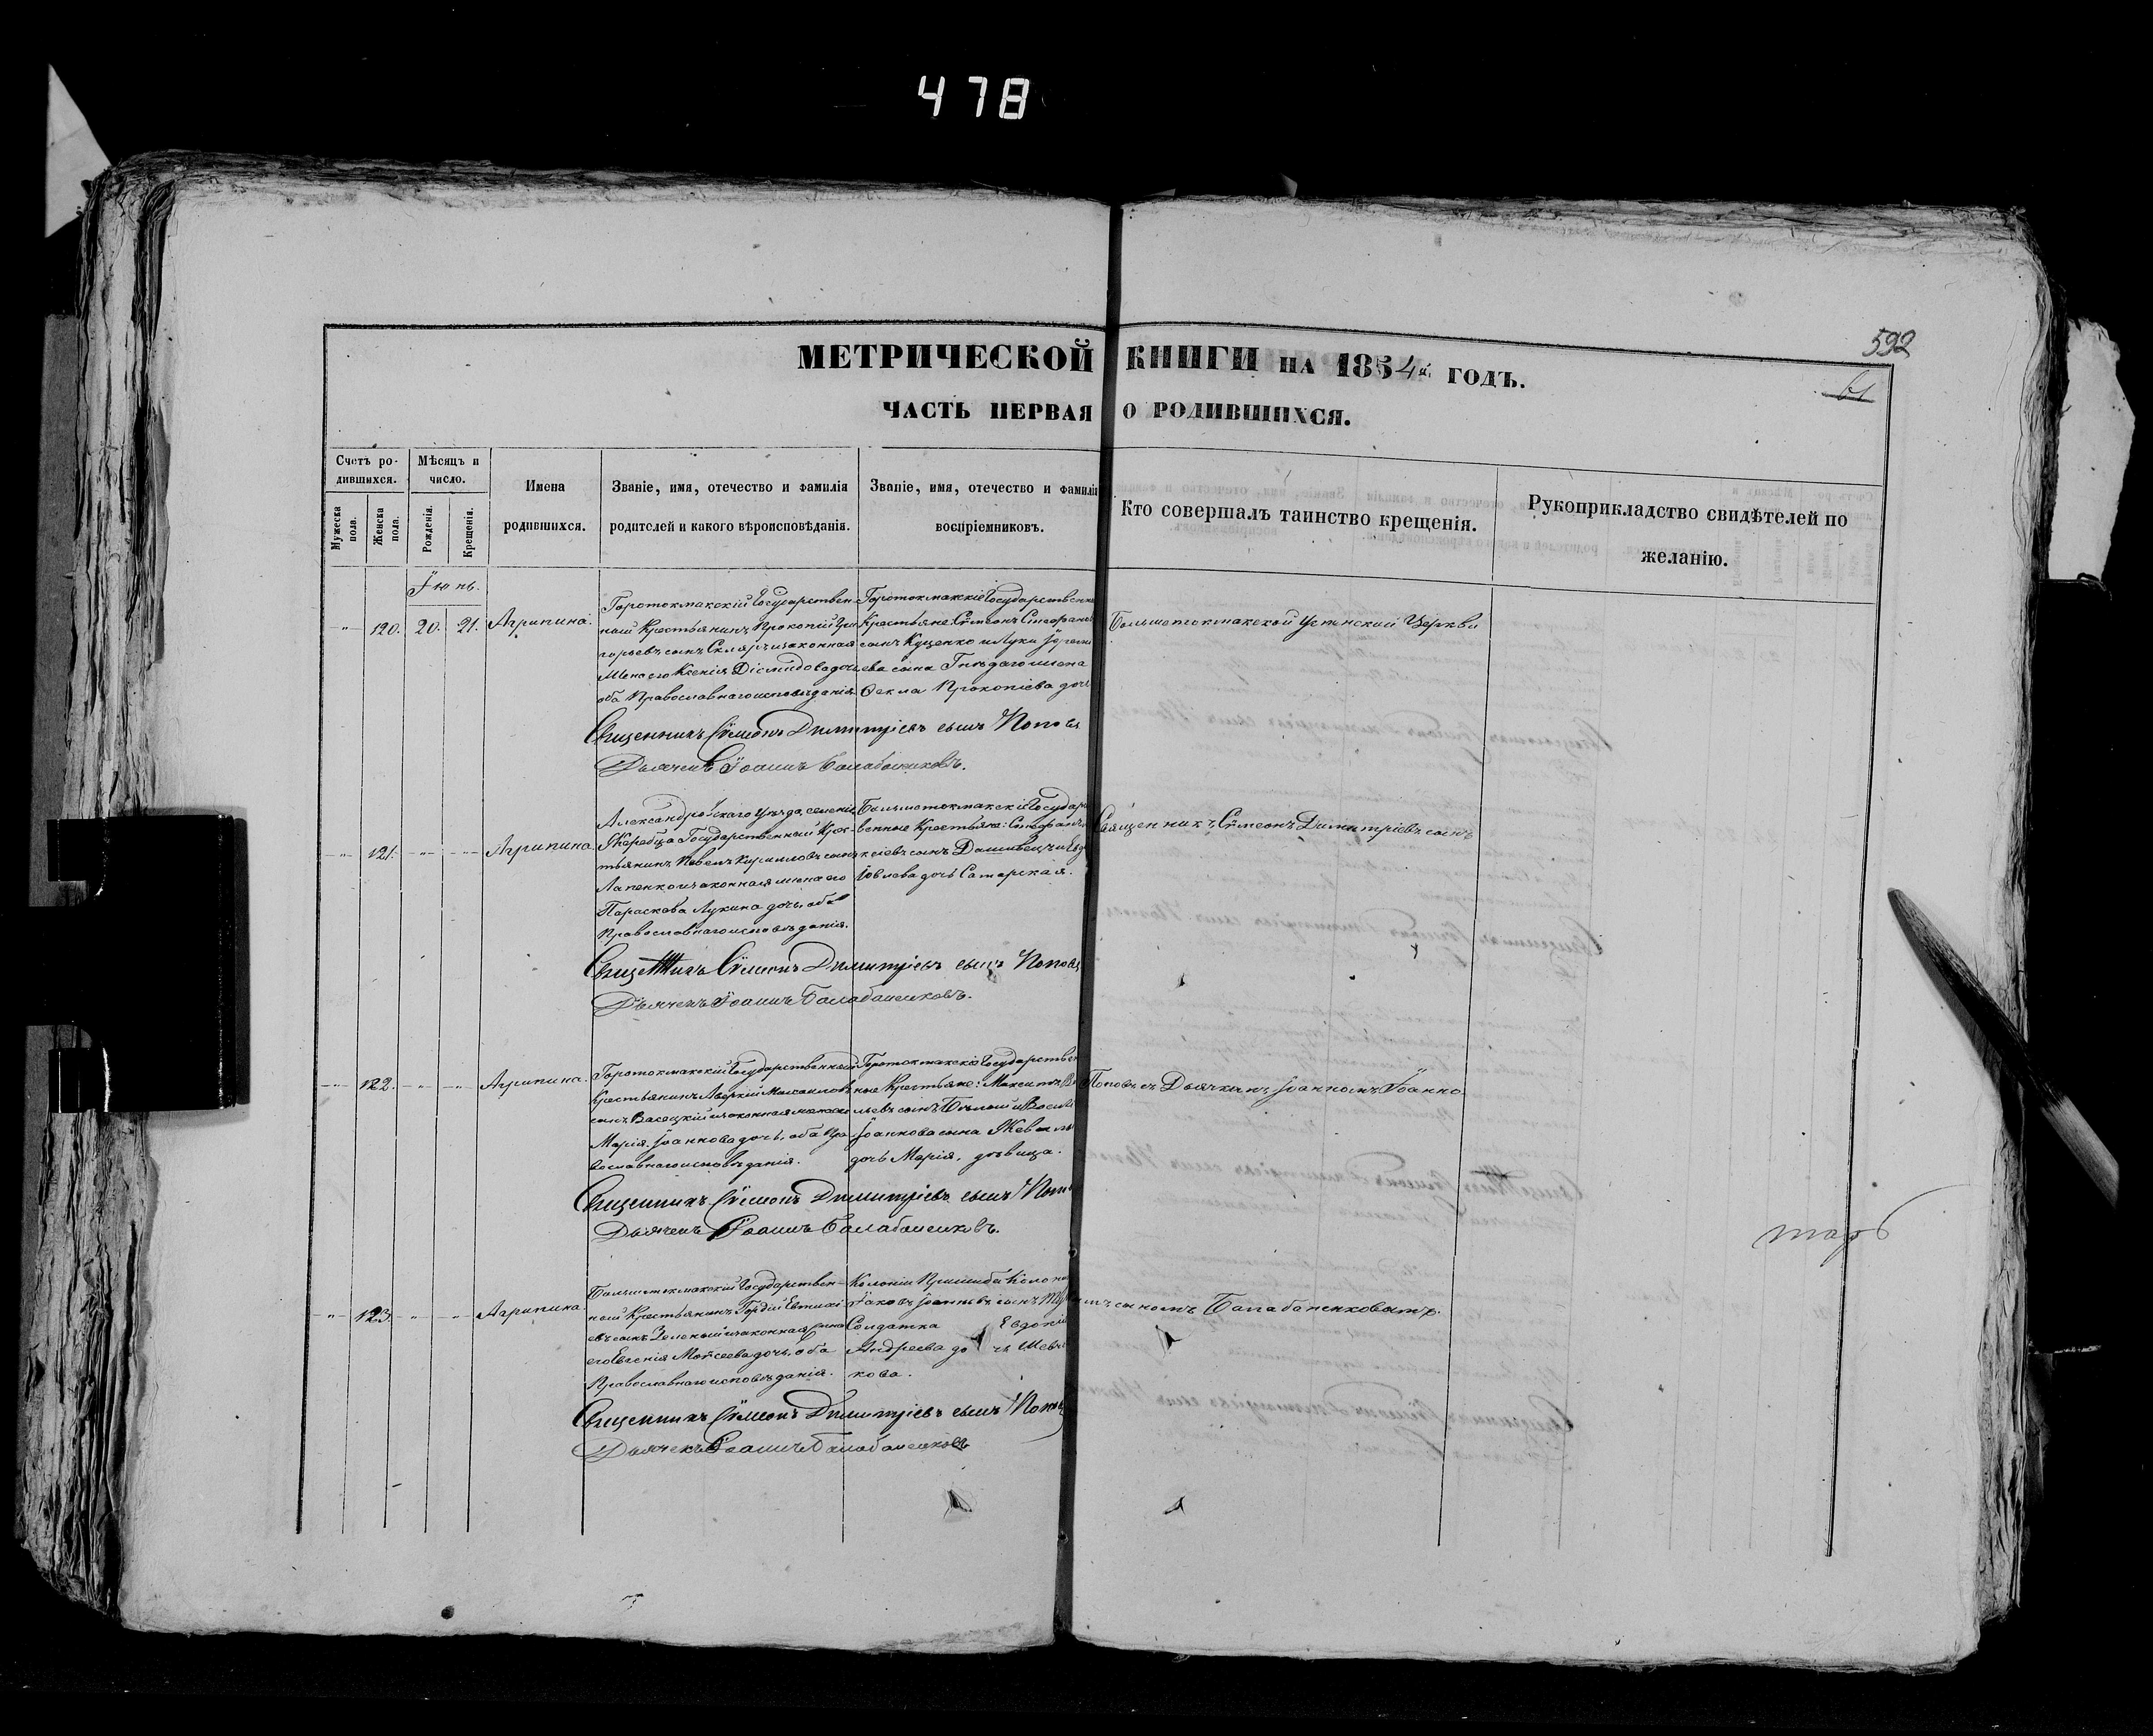 478
592
МЕТРИЧЕСКОЙ КНИГИ НА 1854й ГОДЪ.
61
ЧАСТЬ ПЕРВАЯ О РОДИВШИХСЯ.
Счетъ родившихся.
Мужеска пола.
Женска пола.
Мѣсяцъ и число.
Рожденія.
Крещенія.
Имена родившихся.
Званіе, имя, отечество и фамилія
родителей и какого вѣроисповѣданія.
Званіе, имя, отечество и фамилія
воспріемниковъ.
Кто совершалъ таинство крещенія.
Рукоприкладство свидѣтелей по
желанію.
Іюнь.
120. 20. 21. Агрипина.
Горотокмакскій Государствен-
ный Крестьянинъ Прокопій Гри-
горьевъ сынъ Скляръ и законная
жена его Ксенія Діомидова дочь
оба Православнаго исповѣданія
Горотокмакскіе Государственн
Крестьяне: Сѵмеонъ Стефанов
сынъ Куценко и Луки
ева сына Гнѣдаго жена
Фекла Прокопіева доч
Большетокмакской Успенской Церкви
Священникъ Сѵмеонъ Димитріевъ сынъ Поповъ
Дьячекъ Іоаннъ Балабаненковъ.
121. Агрипина.
Александровскаго Уѣзда, селенія
Жеребца Государственный Крес-
тьянинъ Павелъ Кириловъ сынъ
Лапенко и законная жена его
Параскова Лукина дочь, оба
Православнаго исповѣданія.
Большетокмакскіе Государ
венные Крестьяне: Стефанъ
ксіевъ сынъ Дашивецъ и Евд
Іовлева дочь Самарская.
Священникъ, Сѵмеонъ Димитріевъ сынъ
Священникъ Сѵмеонъ Димитріевъ сынъ Поповъ
Дьячекъ Іоаннъ Балабаненковъ.
122. Агрипина.
Горотокмакскій Государственный
Крестьянинъ Аверкій Михаиловъ
сынъ Васецкій и законная жена его
Марія Іоаннова дочь, оба Пра-
вославнаго исповѣданія.
Горотокмакскіе Государствен
ные Крестьяне: Максимъ Ва
льевъ сынъ Бѣлый и Васил
Іоаннова сына
дочь Марія, дѣвица.
Поповъ съ Дьячкомъ Іоанномъ Іоанно
Священникъ Сѵмеонъ Димитріевъ сынъ Попов
Дьячекъ Іоаннъ Балабаненковъ.
123. Агрипина
Большетокмакскій Государствен-
ный Крестьянинъ Гордій Евтихі
евъ сынъ Зеленый и законная жена
его Евгенія Моѵсеева дочь, оба
Православнаго исповѣданія.
Колоніи Пришибъ Колонис
Іаковъ Іоанновъ сынъ
Солдатка Евдокія
Андреева дочь Шевч
кова.
мъ сыномъ Балабаненковымъ.
Священникъ Сѵмеонъ Димитріевъ сынъ Поповъ
Дьячекъ Іоаннъ Балабаненковъ